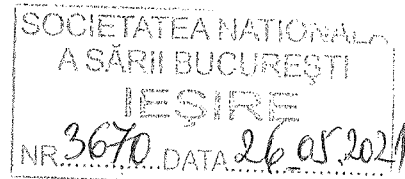 SOCIETATEA NAȚIONALĂ
A SĂRII BUCUREȘTI
IEȘIRE
NR. 3670 DATA 26.05.2021